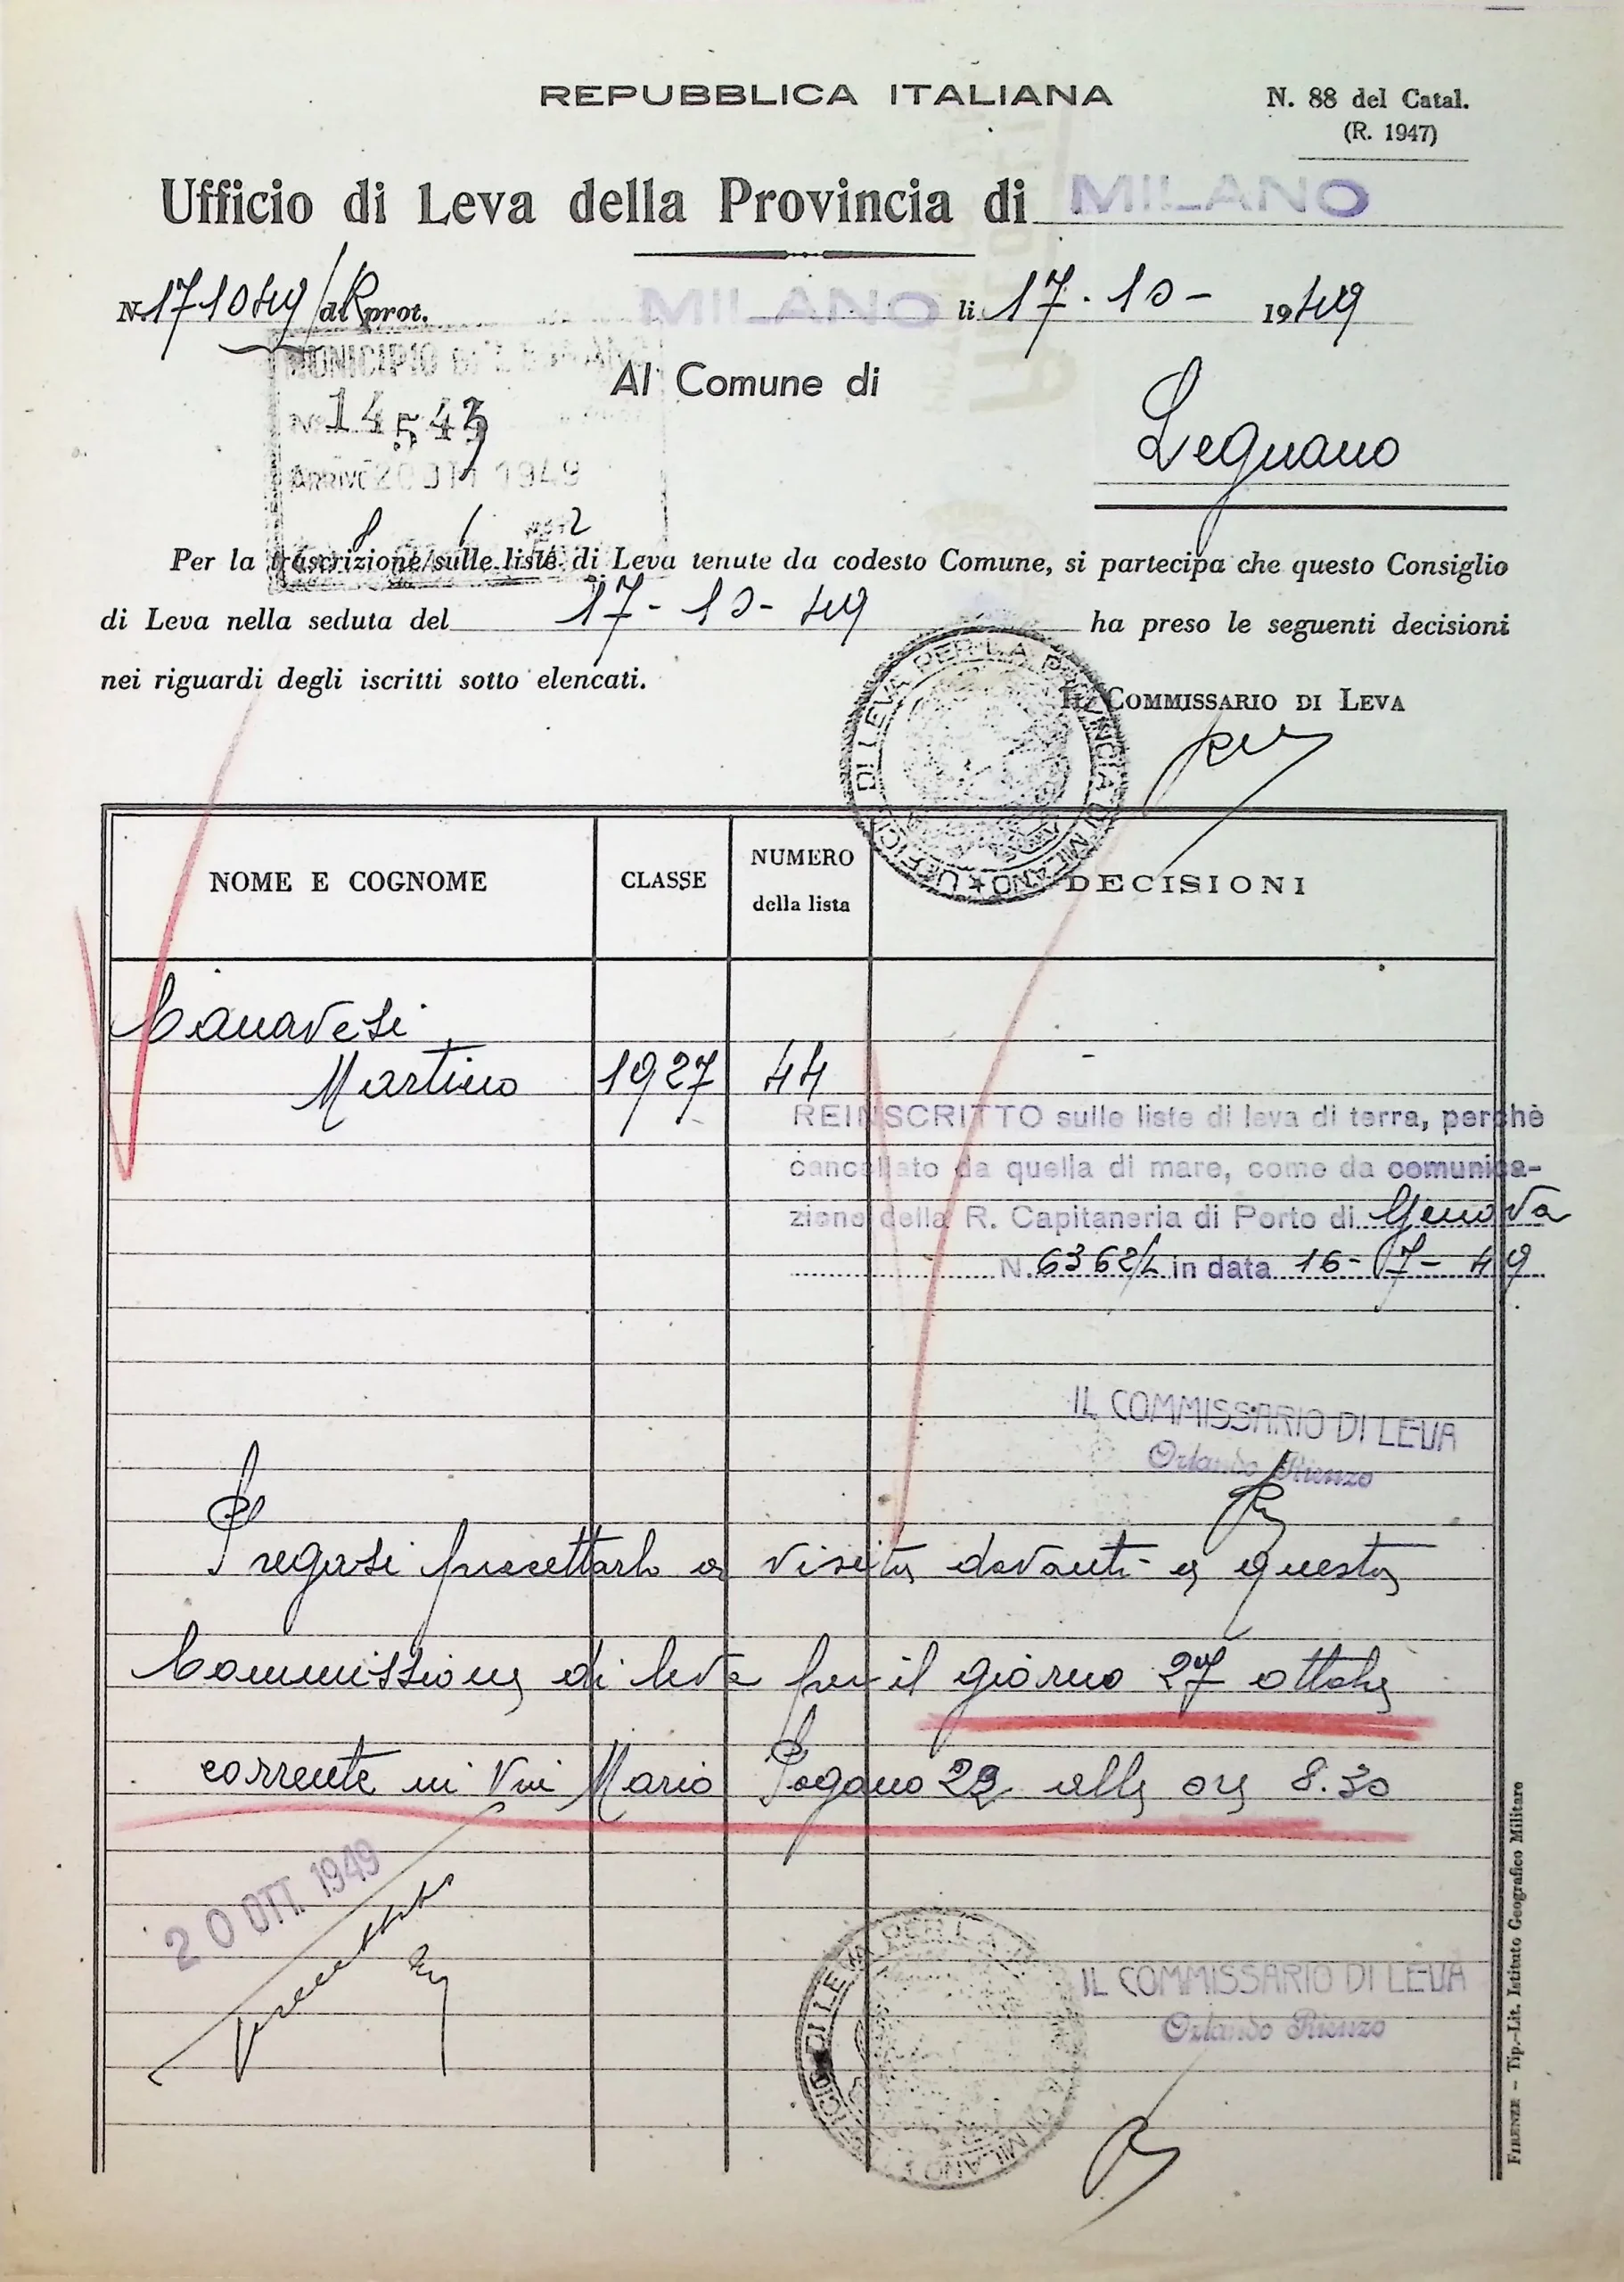 REPUBBLICA ITALIANA
N. 88 del Catal.
(R. 1947)
Ufficio di Leva della Provincia di MILANO
N. 171049/R di prot.
MILANO li 17-10-1949
MUNICIPIO DI LEGNANO
No 14543
Arrivo 20 OTT 1949
Al Comune di
Legnano
Per la trascrizione sulle liste di Leva tenute da codesto Comune, si partecipa che questo Consiglio
di Leva nella seduta del 17-10-49 ha preso le seguenti decisioni
nei riguardi degli iscritti sotto elencati.
IL COMMISSARIO DI LEVA
UFFICIO DI LEVA PER LA PROVINCIA DI MILANO
NOME E COGNOME
CLASSE
NUMERO
della lista
DECISIONI
Canavesi
Martino 1927 44
REINSCRITTO sulle liste di leva di terra, perchè
cancellato da quella di mare, come da comunica-
zione della R. Capitaneria di Porto di Genova
N. 6362/L in data 16-7-49
IL COMMISSARIO DI LEVA
Orlando Rienzo
Pregasi precettarlo a visita davanti a questa
Commissione di leva per il giorno 27 ottobre
corrente in Via Mario Pagano 22 alle ore 8.30
20 OTT. 1949
precettato
UFFICIO DI LEVA PER LA PROVINCIA DI MILANO
IL COMMISSARIO DI LEVA
Orlando Rienzo
FIRENZE - Tip.-Lit. Istituto Geografico Militare